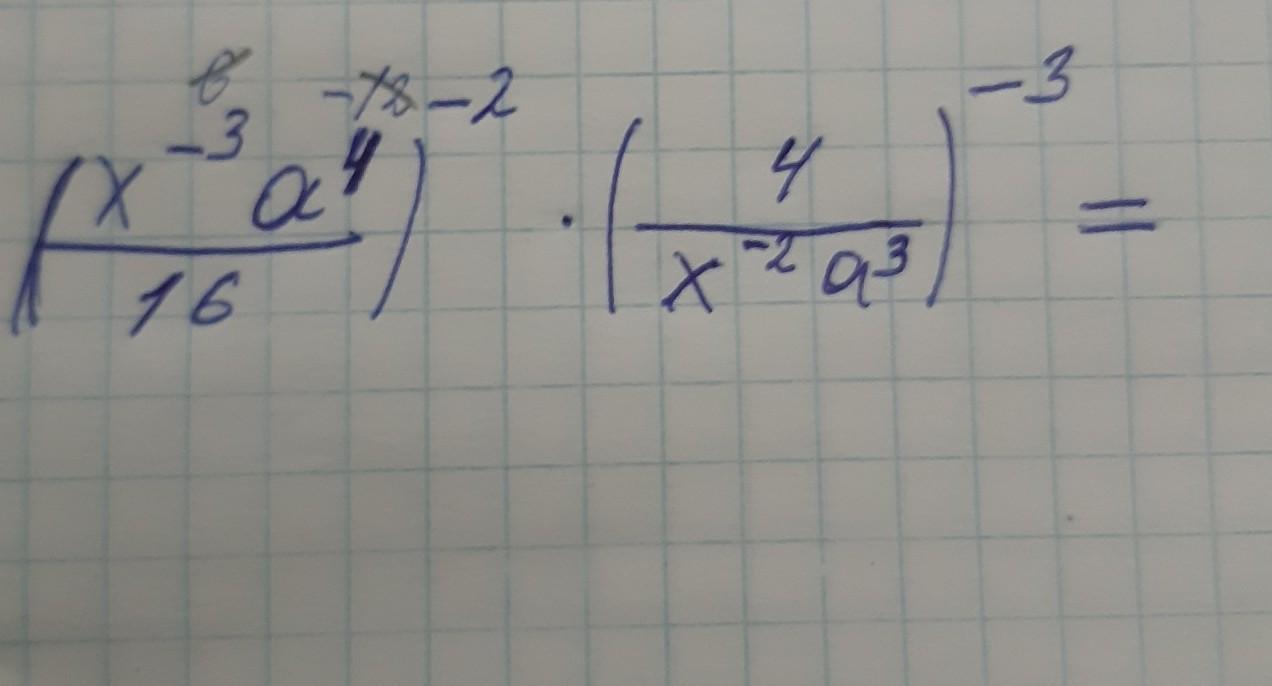 (x⁻³ a⁴ / 16)⁻² · (4 / x⁻² a³)⁻³ =